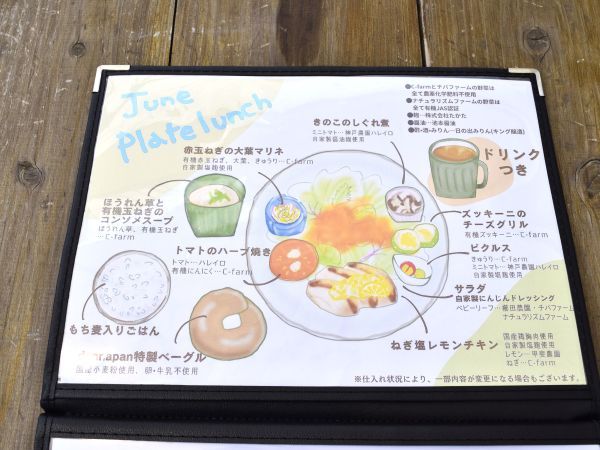 June
Plate lunch
●C-farmとチバファームの野菜は
全て農薬化学肥料不使用
●ナチュラリズムファームの野菜は
全て有機JAS認証
●麹…株式会社たかた
●醤油…池本醤油
●酢・酒・みりん…日の出みりん(キング醸造)
きのこのしぐれ煮
ミニトマト…神戸農園ハレイロ
自家製醤油麹使用
ドリンク
つき
赤玉ねぎの大葉マリネ
有機赤玉ねぎ、大葉、きゅうり…C-farm
自家製塩麹使用
ほうれん草と
有機玉ねぎの
コンソメスープ
ほうれん草、有機玉ねぎ
…C-farm
ズッキーニの
チーズグリル
有機ズッキーニ…C-farm
トマトのハーブ焼き
トマト…ハレイロ
有機にんにく…C-farm
ピクルス
きゅうり…C-farm
ミニトマト…神戸農園ハレイロ
自家製塩麹使用
サラダ
自家製にんじんドレッシング
ベビーリーフ…薔田農園・チバファーム
ナチュラリズムファーム
もち麦入りごはん
apan特製ベーグル
国産小麦粉使用、卵・牛乳不使用
ねぎ塩レモンチキン
国産鶏胸肉使用
自家製塩麹使用
レモン…甲斐農園
ねぎ…C-farm
※仕入れ状況により、一部内容が変更になる場合もございます。